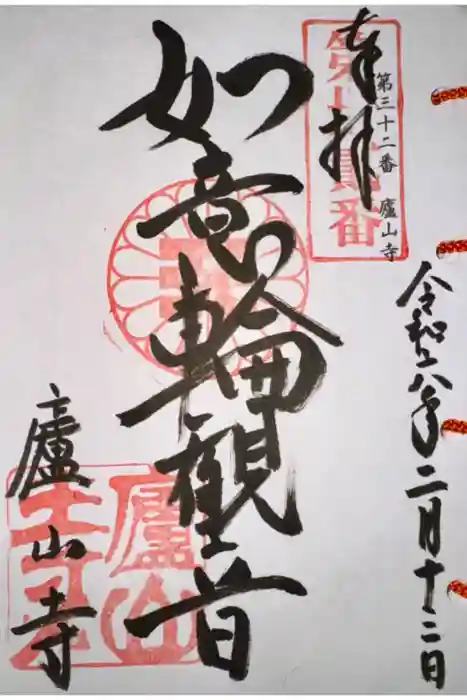 令和八年二月十二日
奉拝
第三十二番 廬山寺
如意輪觀音
廬山寺
廬山寺